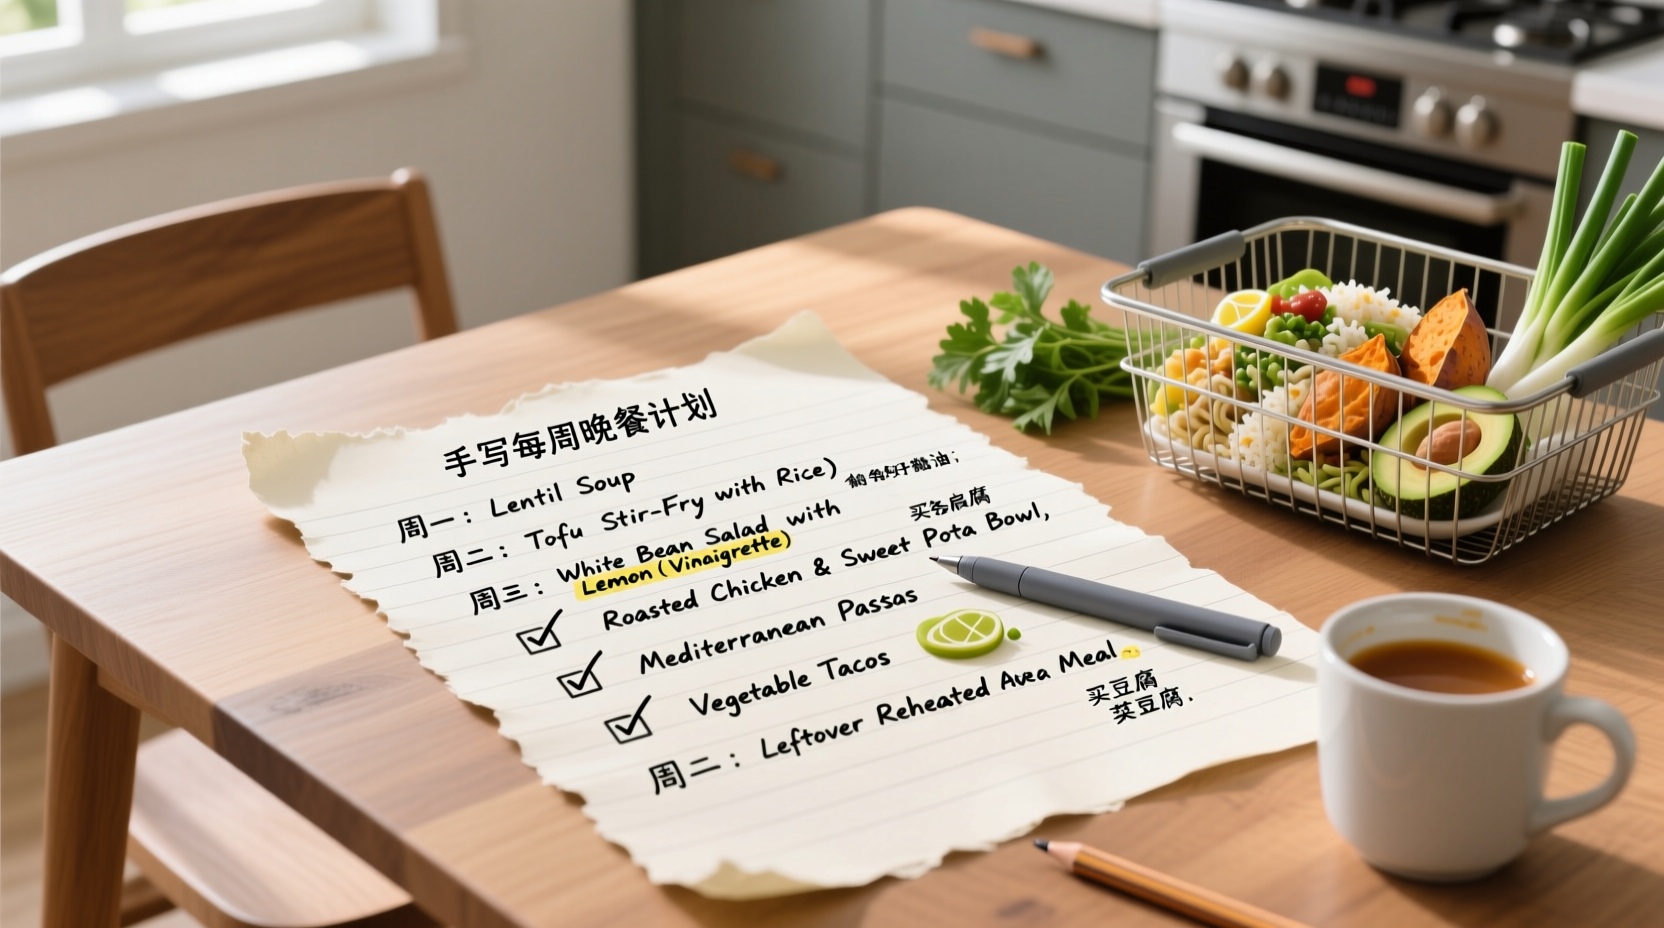 手写每周晚餐计划
周一：Lentil Soup
周二：Tofu Stir-Fry with Rice)
周三：White Bean Salad with
Lemon (Vinaigrette)
买务腐腐
Roasted Chicken & Sweet Pota Bowl,
Mediterranean Passas
Vegetable Tacos
周二：Leftover Reheated Avea Meal
买豆腐
豆腐.